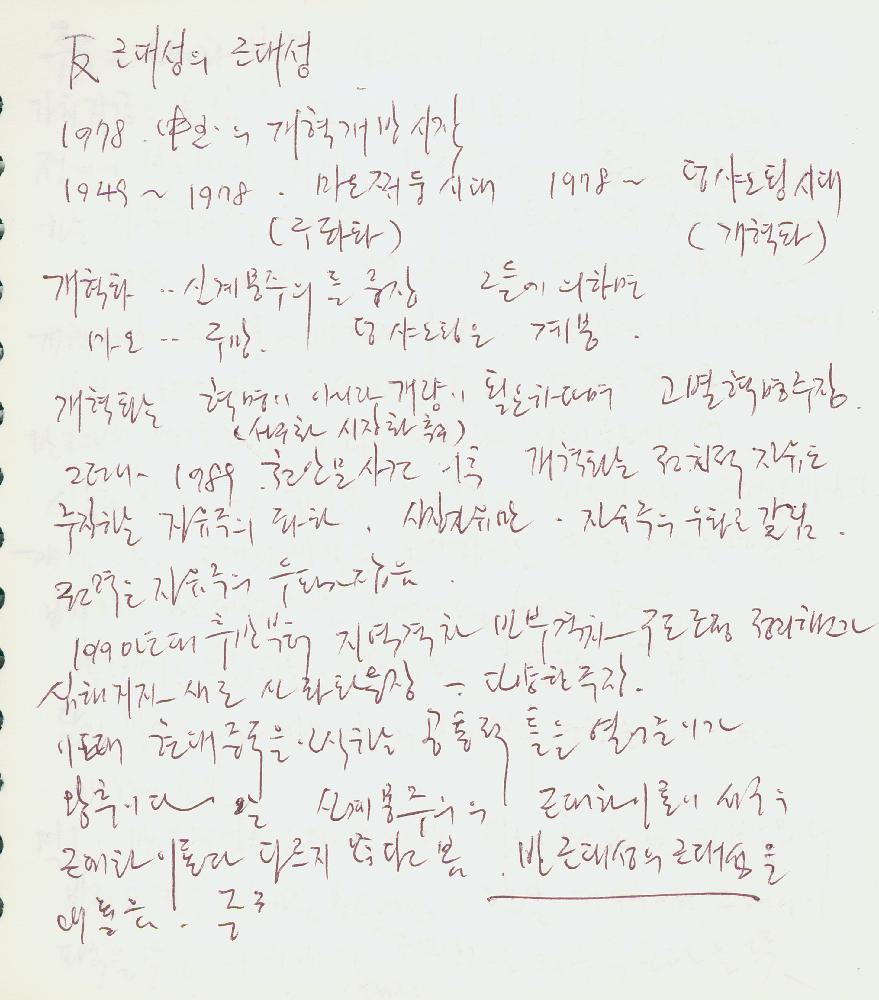 反 근대성의 근대성
1978. 中공의 개혁개방 시작
1949 ~ 1978. 마오쩌둥 시대 1978 ~ 덩샤오핑 시대
(주좌파) (개혁파)
개혁파 -- 신계몽주의를 주장 그들에 의하면
마오 -- 구망. 덩샤오핑은 계몽.
개혁파는 혁명이 아니라 개량이 필요하다며 고별혁명 주장.
(서구화 시장화 촉구)
그러나 1989 천안문사건 이후 개혁파는 정치적 자유도
주장하는 자유주의 좌파와. 시장자유만. 자유주의 우파로 갈림.
권력은 자유주의 우파가 잡음.
1990년대 후반부터 지역격차 빈부격차 구조조정 정리해고가
심해지자 새로 신좌파 등장 - 다양한 주장.
이때 현대중국을 인식하는 공통적 틀을 열어준 이가
왕후이다 신계몽주의의 근대화이론이 서구의
근대화이론과 다르지 않다고 봄. 반 근대성의 근대성을
내놓음. 중국